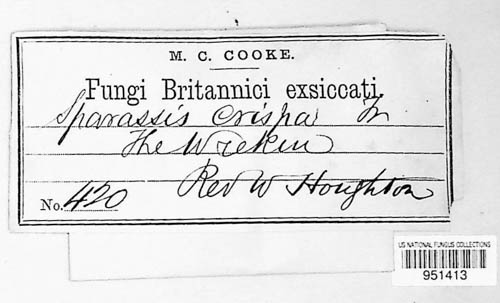 M. C. COOKE.
Fungi Britannici exsiccati.
Sparassis crispa Fr
The Wrekin
Rev W Houghton
No. 420
US NATIONAL FUNGUS COLLECTIONS
951413